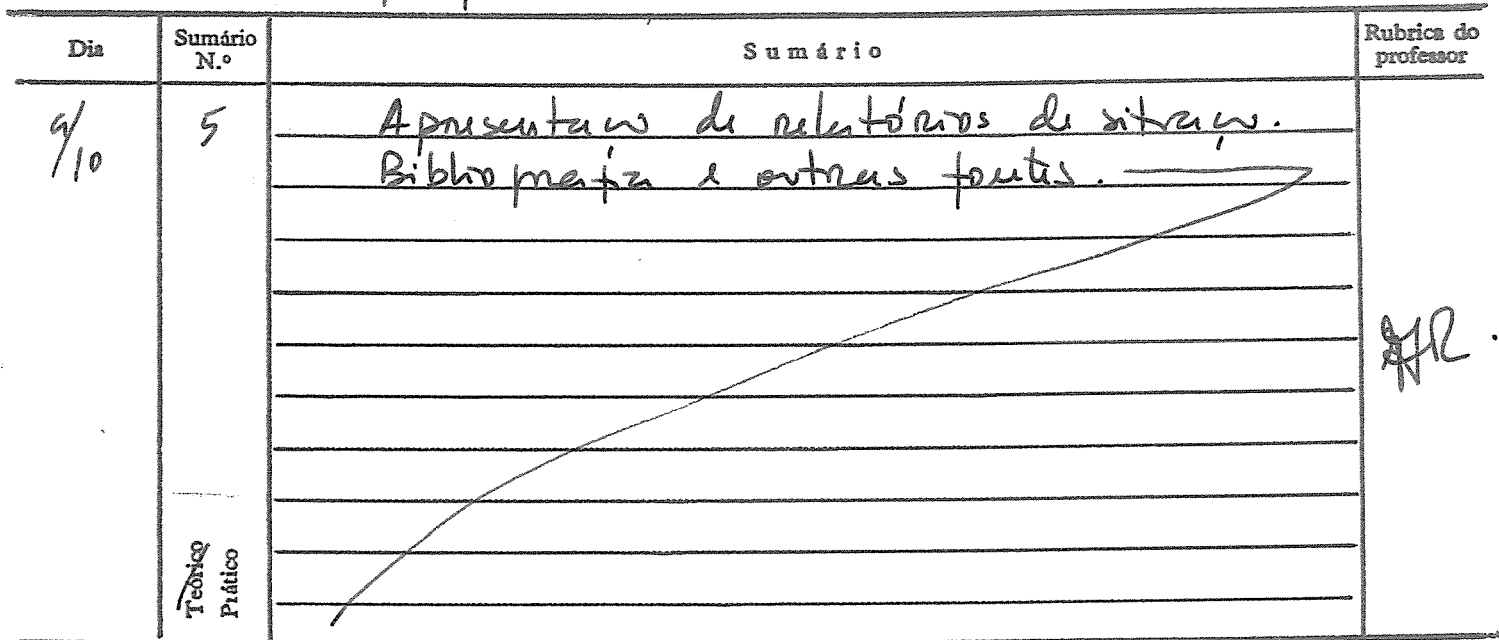 Dia
Sumário N.º
Sumário
Rubrica do professor
9/10
5
Apresentação de relatórios de situação.
Bibliografia e outras fontes.
Teórico
Prático